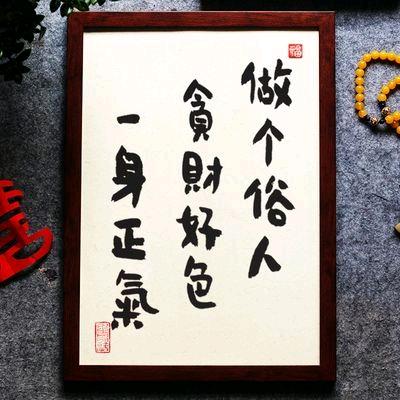 做个俗人
貪財好色
一身正氣
福